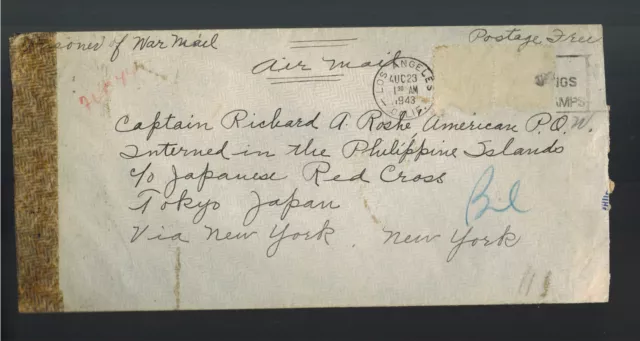 Prisoner of War Mail
Postage Free
Air Mail
LOS ANGELES
AUG 23
1 30 AM
1943
CALIF.
NGS
AMPS
Captain Richard A. Roshe American P.O.W.
Interned in the Philippine Islands
c/o Japanese Red Cross
Tokyo Japan
Via New York, New York